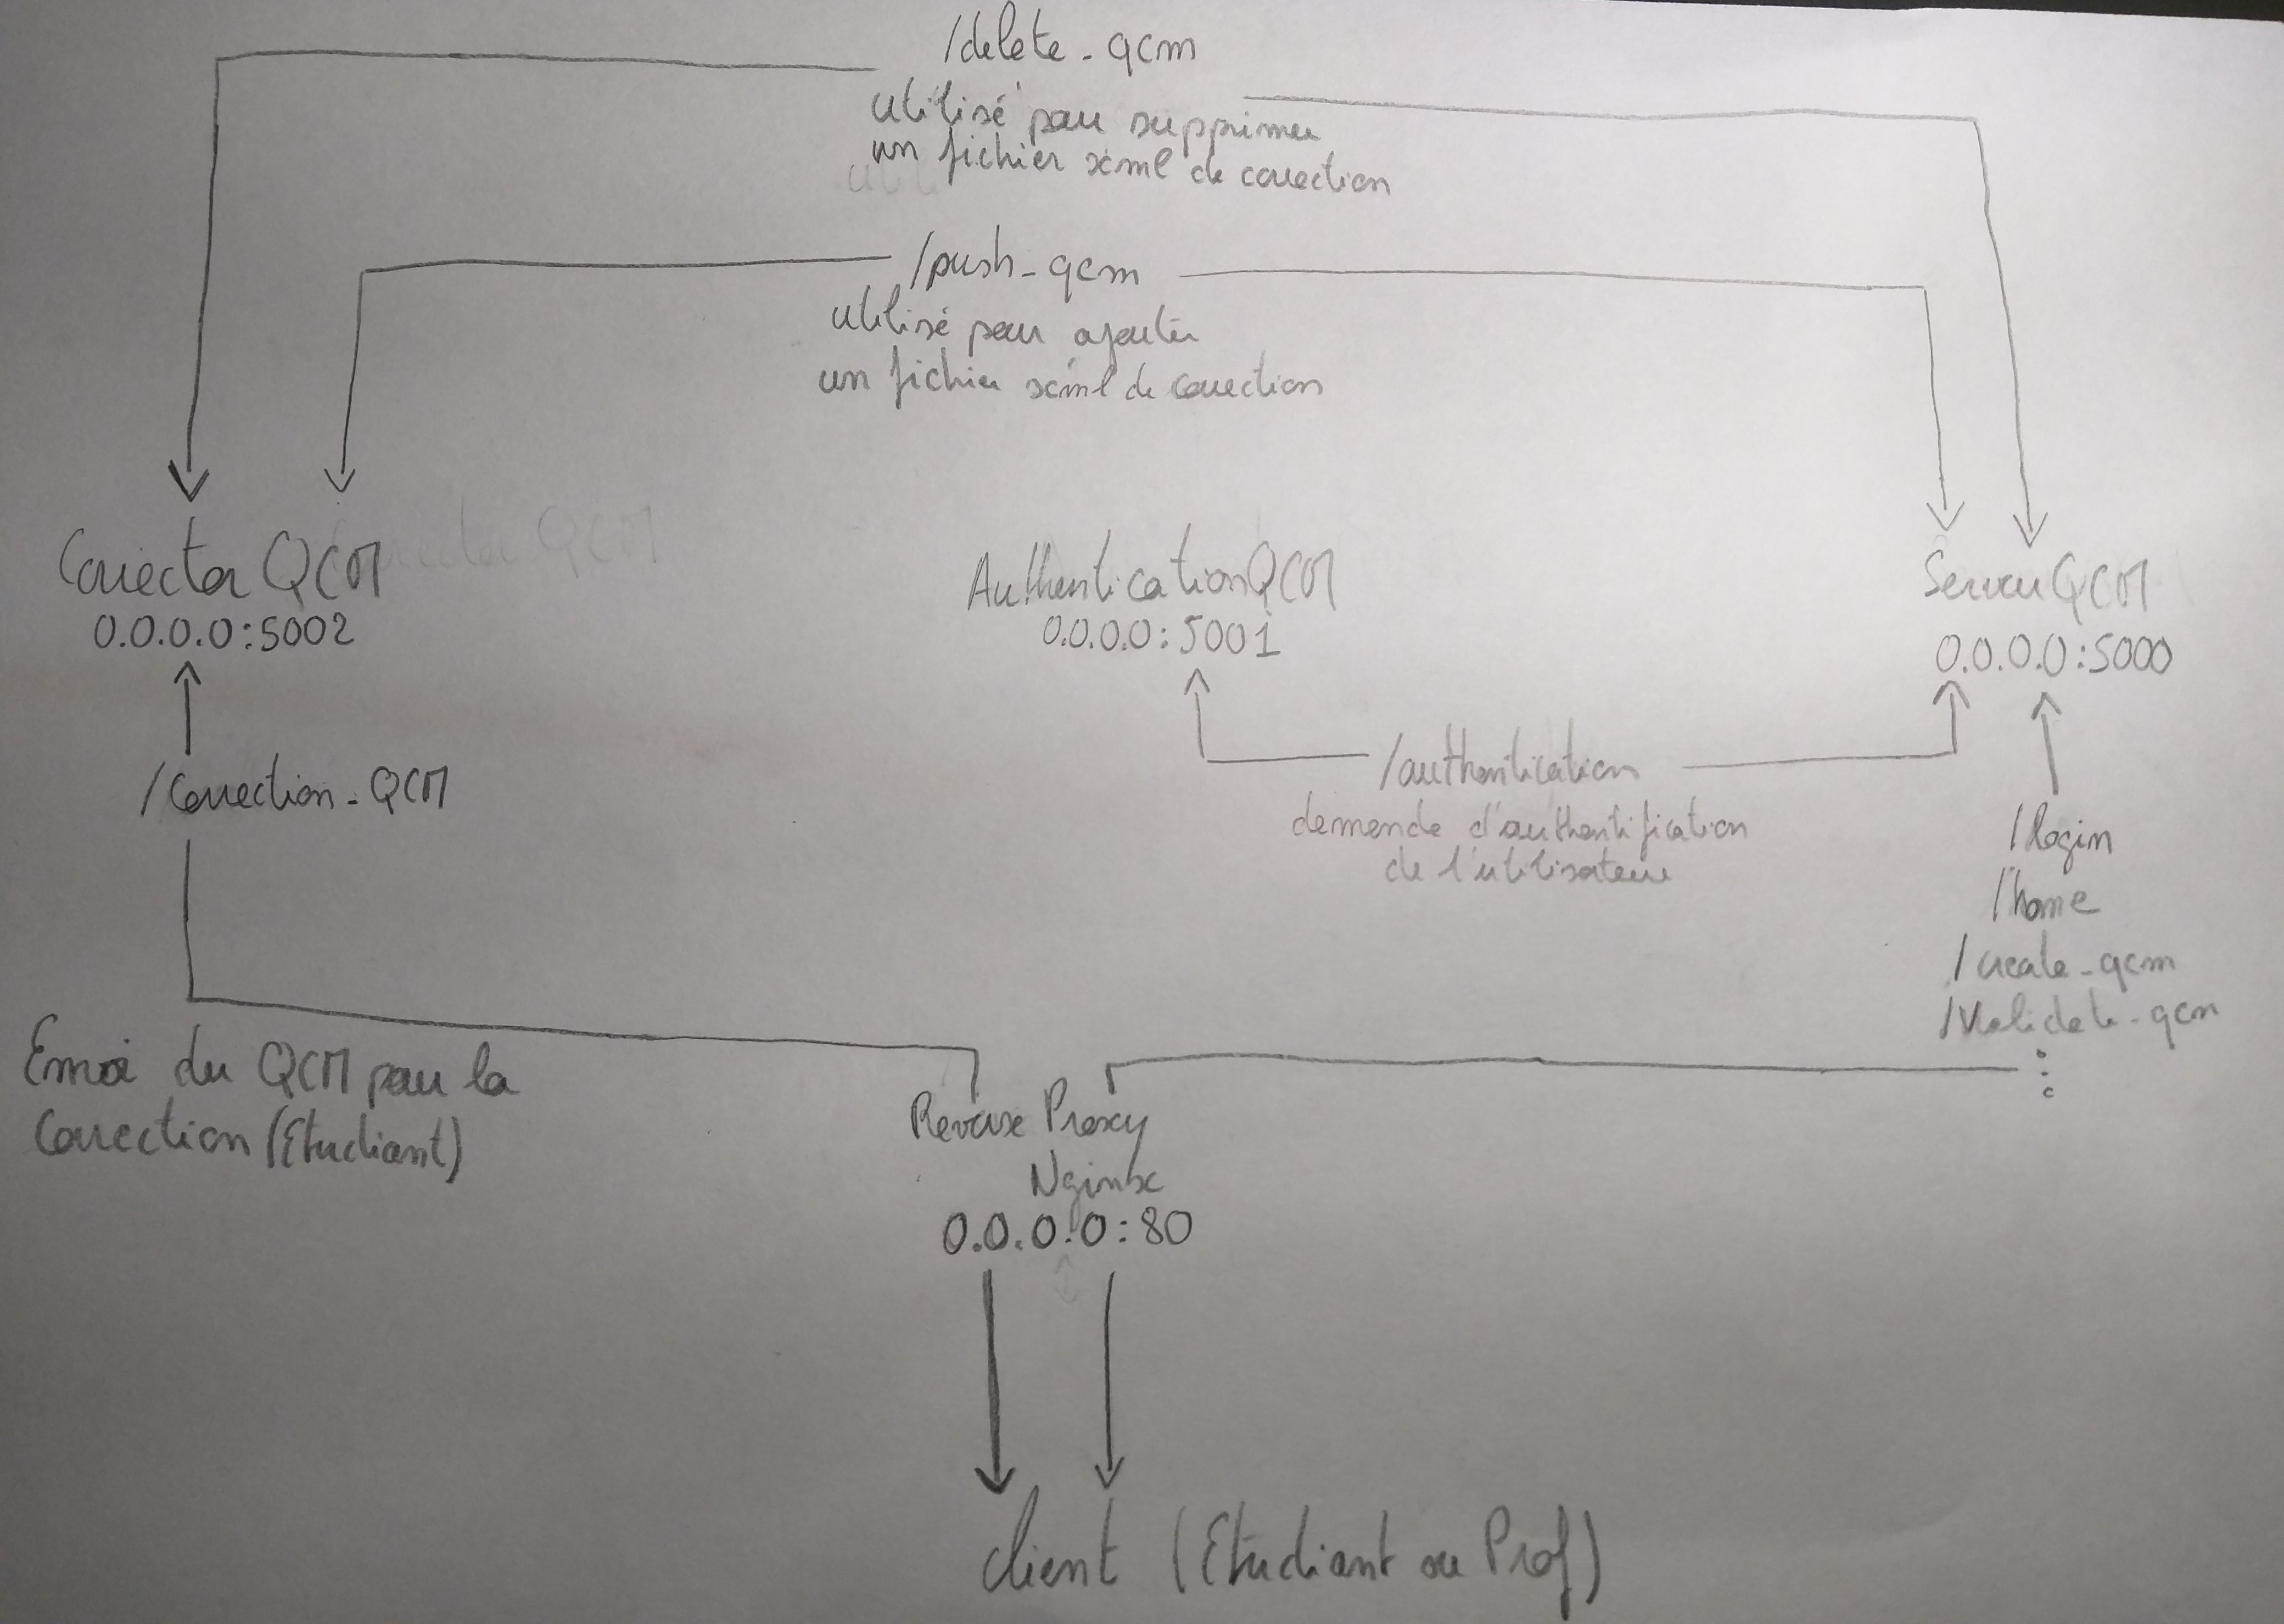 /delete_qcm
utilisé pour supprimer
un fichier xml de correction
/push_qcm
utilisé pour ajouter
un fichier xml de correction
CorrectorQCM
0.0.0.0:5002
AuthenticationQCM
0.0.0.0:5001
ServeurQCM
0.0.0.0:5000
/Correction_QCM
/authentication
demande d'authentification
de l'utilisateur
/login
/home
/create_qcm
/Validate_qcm
Envoi du QCM pour la
Correction (Etudiant)
Reverse Proxy
Nginx
0.0.0.0:80
client (Etudiant ou Prof)